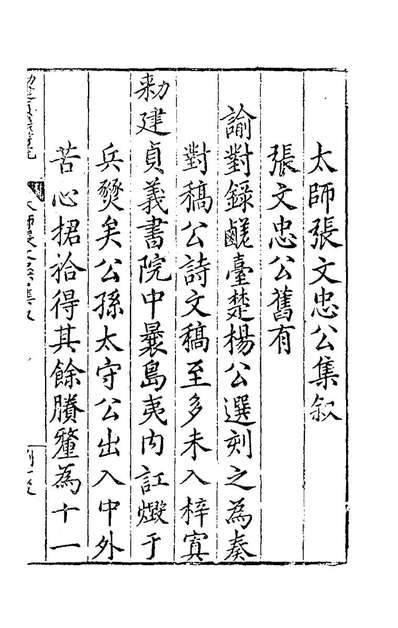 太師張文忠公集叙
張文忠公舊有
諭對錄鹺臺楚楊公選刻之為奏
對稿公詩文稿至多未入梓寘
勅建貞義書院中曩島夷內訌燬于
兵燹矣公孫太守公出入中外
苦心捃拾得其餘賸釐為十一
太師張文忠公集叙